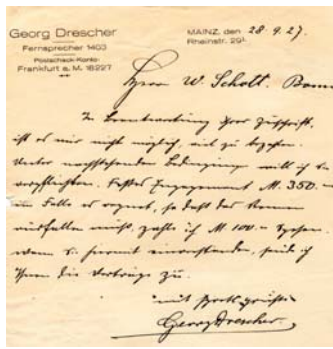 Georg Drescher
Fernsprecher 1403
Postscheck-Konto:
Frankfurt a. M. 18227
MAINZ, den 28. 9. 27.
Rheinstr. 29¹
Herrn W. Schott. Bonn
In Beantwortung Ihrer Zuschrift,
ist es mir nicht möglich, viel zu bezahlen.
Unter nachstehenden Bedingungen will ich Sie
verpflichten. Festes Engagement M. 350.
im Falle es regnet, so daß das Rennen
ausfallen muß, zahle ich M. 100.= Spesen.
wenn Sie hiermit einverstanden, sende ich
Ihnen die Verträge zu.
mit Sportsgrüßen
Georg Drescher.